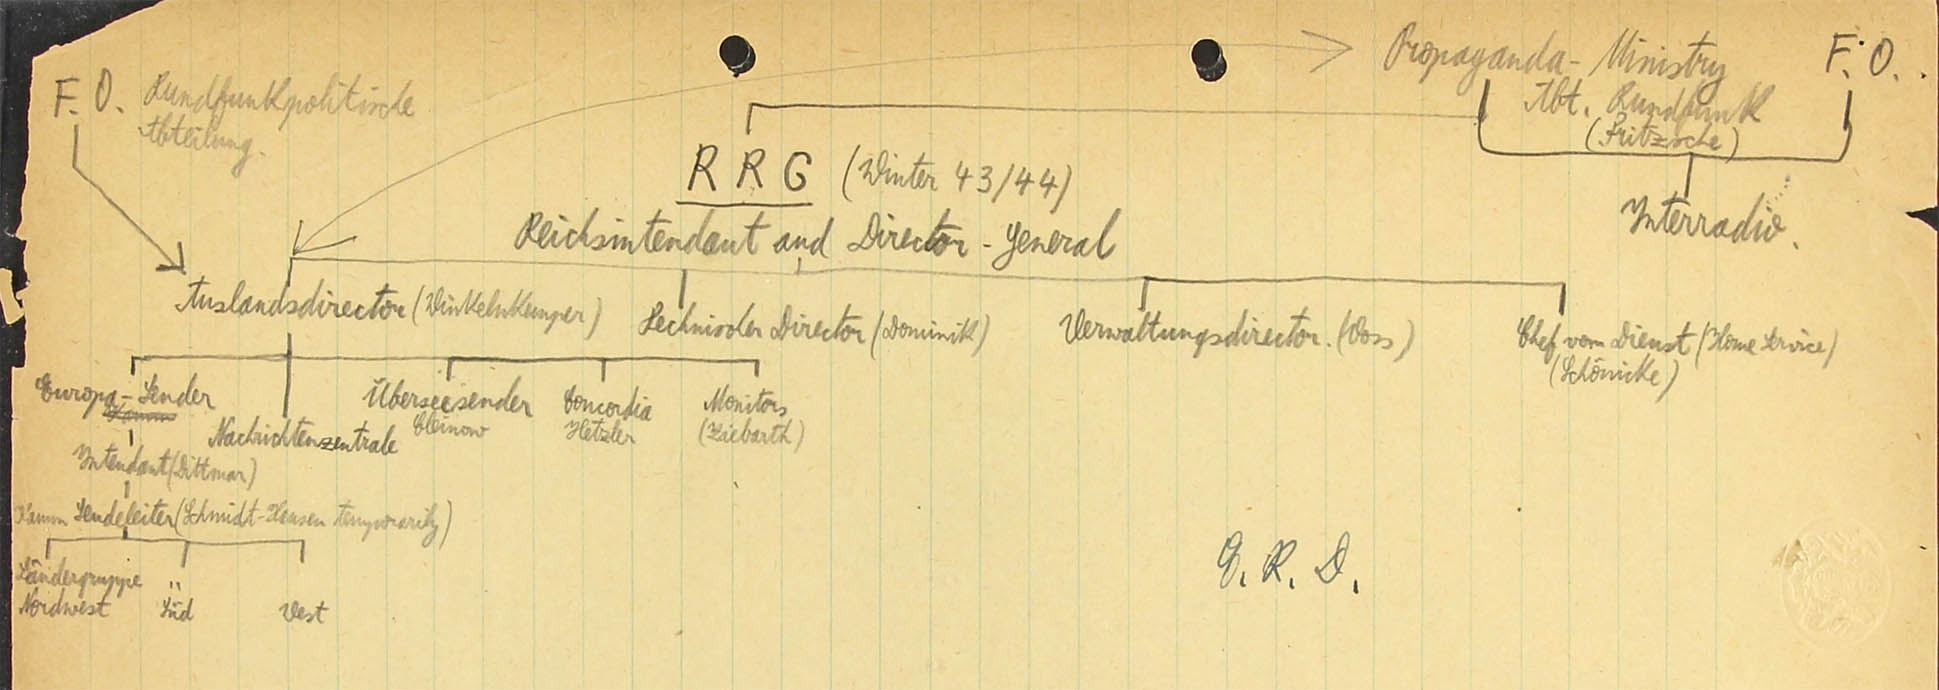 Propaganda-Ministry
F. O.
F. O. Rundfunkpolitische
Abteilung.
Abt. Rundfunk
(Fritzsche)
R R G (Winter 43/44)
Interradio.
Reichsintendant and Director-General
Auslandsdirector (Winkelnkemper)
Technischer Director (Dominik)
Verwaltungsdirector. (Voss)
Chef vom Dienst (Home Service)
(Schönicke)
Europa-Sender
Nachrichtenzentrale
Überseesender
Cleinow
Concordia
Hetzler
Monitors
(Ziebarth)
Intendant (Dittmar)
Sendeleiter (Schmidt-Hansen temporarily)
Ländergruppe
Nordwest
" Süd
West
G. R. D.